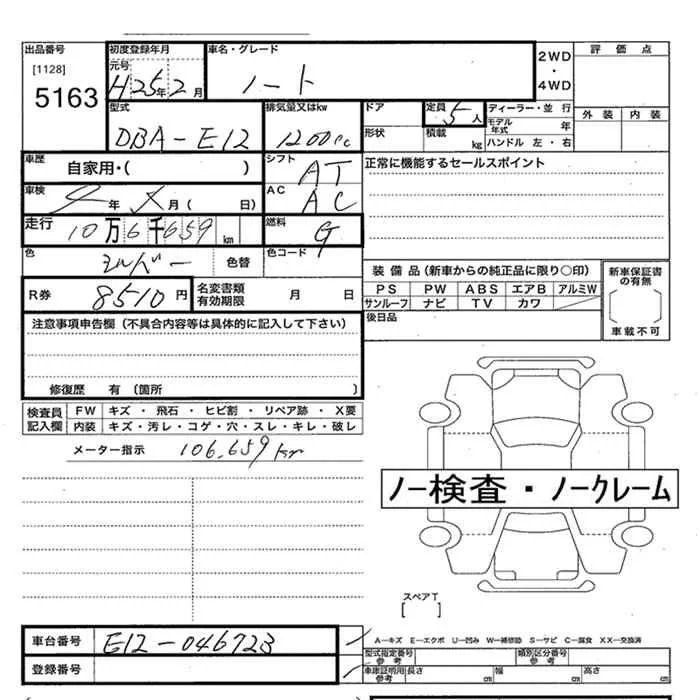 出品番号
[1128]
5163
初度登録年月
元号
H25年2月
車名・グレード
ノート
2WD
・
4WD
評価点
外装 内装
型式
DBA-E12
排気量又はkw
1200cc
ドア
形状
定員
5人
積載 kg
ディーラー・並 行
モデル年式 年
ハンドル 左・右
車歴
自家用・( )
シフト
AT
正常に機能するセールスポイント
車検
年 月( 日)
AC
AC
走行
10万6千659km
燃料
G
色
シルバー
色替
色コード
装備品(新車からの純正品に限り〇印)
PS PW ABS エアB アルミW
サンルーフ ナビ TV カワ
新車保証書の有無
車載不可
R券
8510円
名変書類有効期限 月 日
後日品
注意事項申告欄(不具合内容等は具体的に記入して下さい)
修復歴 有(箇所 )
検査員記入欄
FW キズ・飛石・ヒビ割・リペア跡・X要
内装 キズ・汚レ・コゲ・穴・スレ・キレ・破レ
メーター指示 106,659km
ノー検査・ノークレーム
スペアT
[ ]
車台番号 E12-046723
登録番号
A-キズ E-エクボ U-凹み W-補修跡 S-サビ C-腐食 XX-交換済
型式指定番号参考
類別区分番号参考
車庫証明用参考 長さ cm 幅 cm 高さ cm